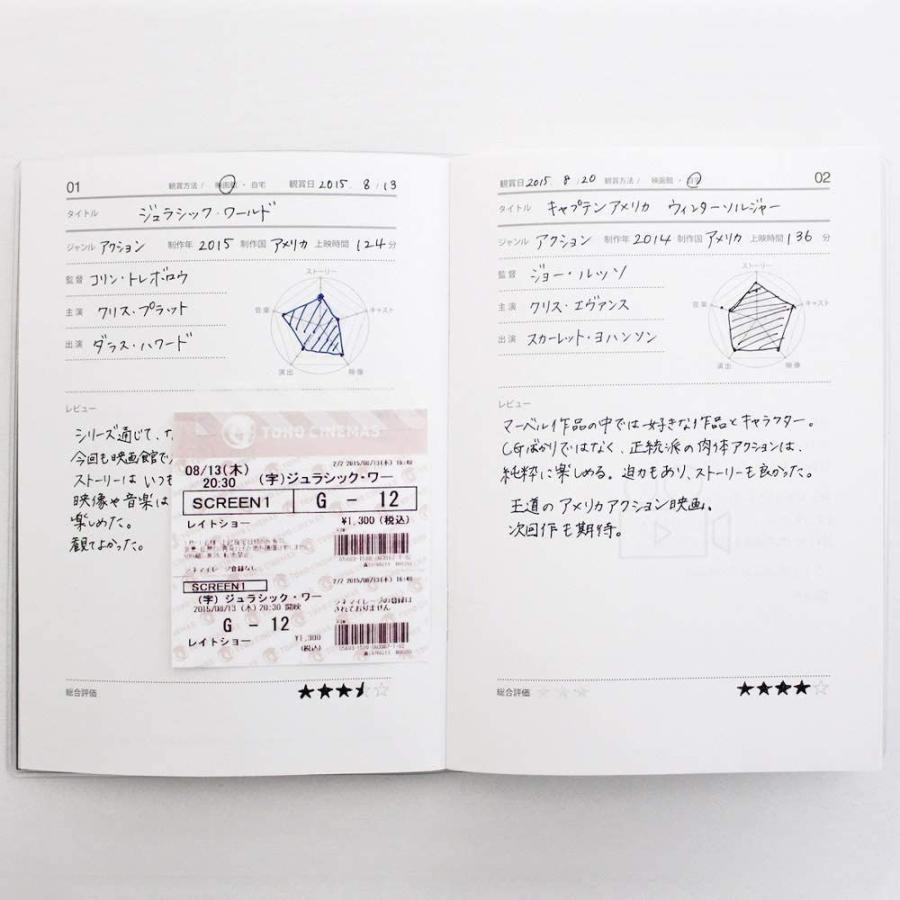 01 観賞方法 / 映画館・自宅 観賞日 2015. 8 / 13
タイトル ジュラシック・ワールド
ジャンル アクション 制作年 2015 制作国 アメリカ 上映時間 124 分
監督 コリン・トレボロウ
主演 クリス・プラット
出演 ダラス・ハワード
ストーリー
音楽 キャスト
演出 映像
レビュー
シリーズ通じて、
今回も映画館で
ストーリーは いつも
映像や音楽は
楽しめた。
観てよかった。
TOHO CINEMAS
2/2 2015/08/13(木) 16:40
08/13(木)
20:30 (字)ジュラシック・ワー
SCREEN1 G - 12
レイトショー ¥1,300 (税込)
シネマイレージ登録なし
2/2 2015/08/13(木) 16:40
SCREEN1
(字) ジュラシック・ワー
シネマイレージの登録は
されておりません
2015/08/13 (木) 20:30 開映
G - 12
レイトショー ¥1,300
(税込)
総合評価 ★★★☆☆
観賞日 2015. 8 / 20 観賞方法 / 映画館・自宅 02
タイトル キャプテンアメリカ ウィンターソルジャー
ジャンル アクション 制作年 2014 制作国 アメリカ 上映時間 136 分
監督 ジョー・ルッソ
主演 クリス・エヴァンス
出演 スカーレット・ヨハンソン
ストーリー
音楽 キャスト
演出 映像
レビュー
マーベル作品の中では一番好きな作品とキャラクター。
CGばかりではなく、正統派の肉体アクションは、
純粋に楽しめる。迫力もあり、ストーリーも良かった。
王道のアメリカアクション映画。
次回作も期待。
総合評価 ★★★★☆